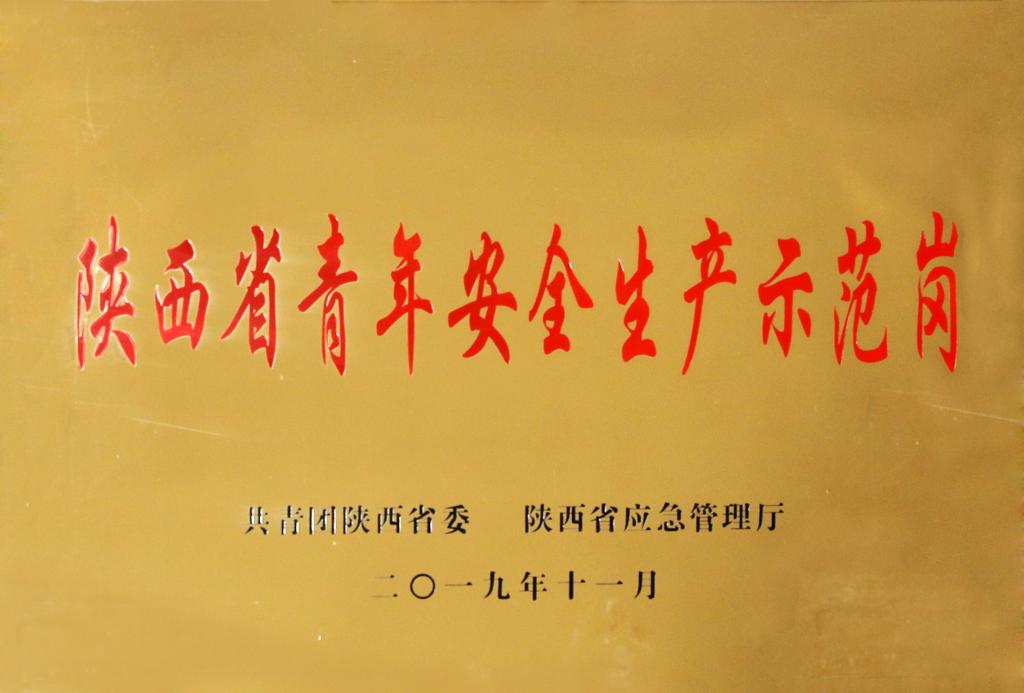 陕西省青年安全生产示范岗
共青团陕西省委 陕西省应急管理厅
二〇一九年十一月